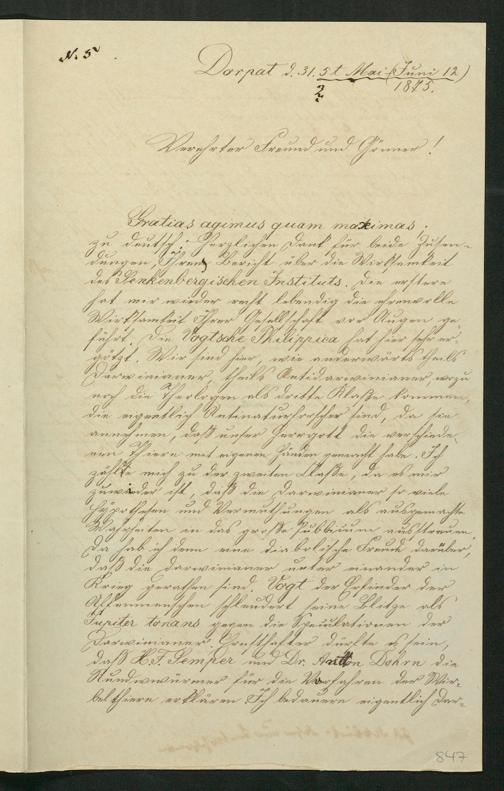 N. 5
Dorpat d. 31. st Mai (Juni 12)
2
1875.
Verehrter Freund und Gönner!
Gratias agimus quam maximas:
zu deutsch: Herzlichen Dank für beide Zusen-
dungen, Ihren Bericht über die Wirksamkeit
des Senkenbergischen Instituts. Die erstere
hat mir wieder recht lebendig die ehrenvolle
Wirksamkeit Ihrer Gesellschaft vor Augen ge-
führt. Die Vogtsche Philippica hat hier sehr er-
götzt. Wir sind hier, wie anderwärts theils
Darwinianer theils Antidarwinianer, wozu
noch die Theologen als dritte Klaße kommen,
die eigentlich Antinaturforscher sind, da sie
annehmen, daß unser Herrgott die verschiede-
nen Thiere mit eigenen Händen gemacht habe. Ich
zähle mich zu der zweiten Klaße, da es mir
zuwider ist, daß die Darwinianer so viele
Hypothesen und Vermuthungen als ausgemachte
Wahrheiten in das große Publicum ausstreuen.
Da hab ich denn eine diabolische Freude darüber,
daß die Darwinianer unter einander in
Krieg gerathen sind. Vogt der Erfinder der
Affenmenschen schleudert seine Blitze als
Jupiter tonans gegen die Speculationen der
Darwinianer. Ernsthafter dürfte es sein,
daß Semper und Dr. Anton Dohrn die
Rundwürmer für die Vorfahren der Wir-
belthiere erklären. Ich bedauere eigentlich Dar-
847